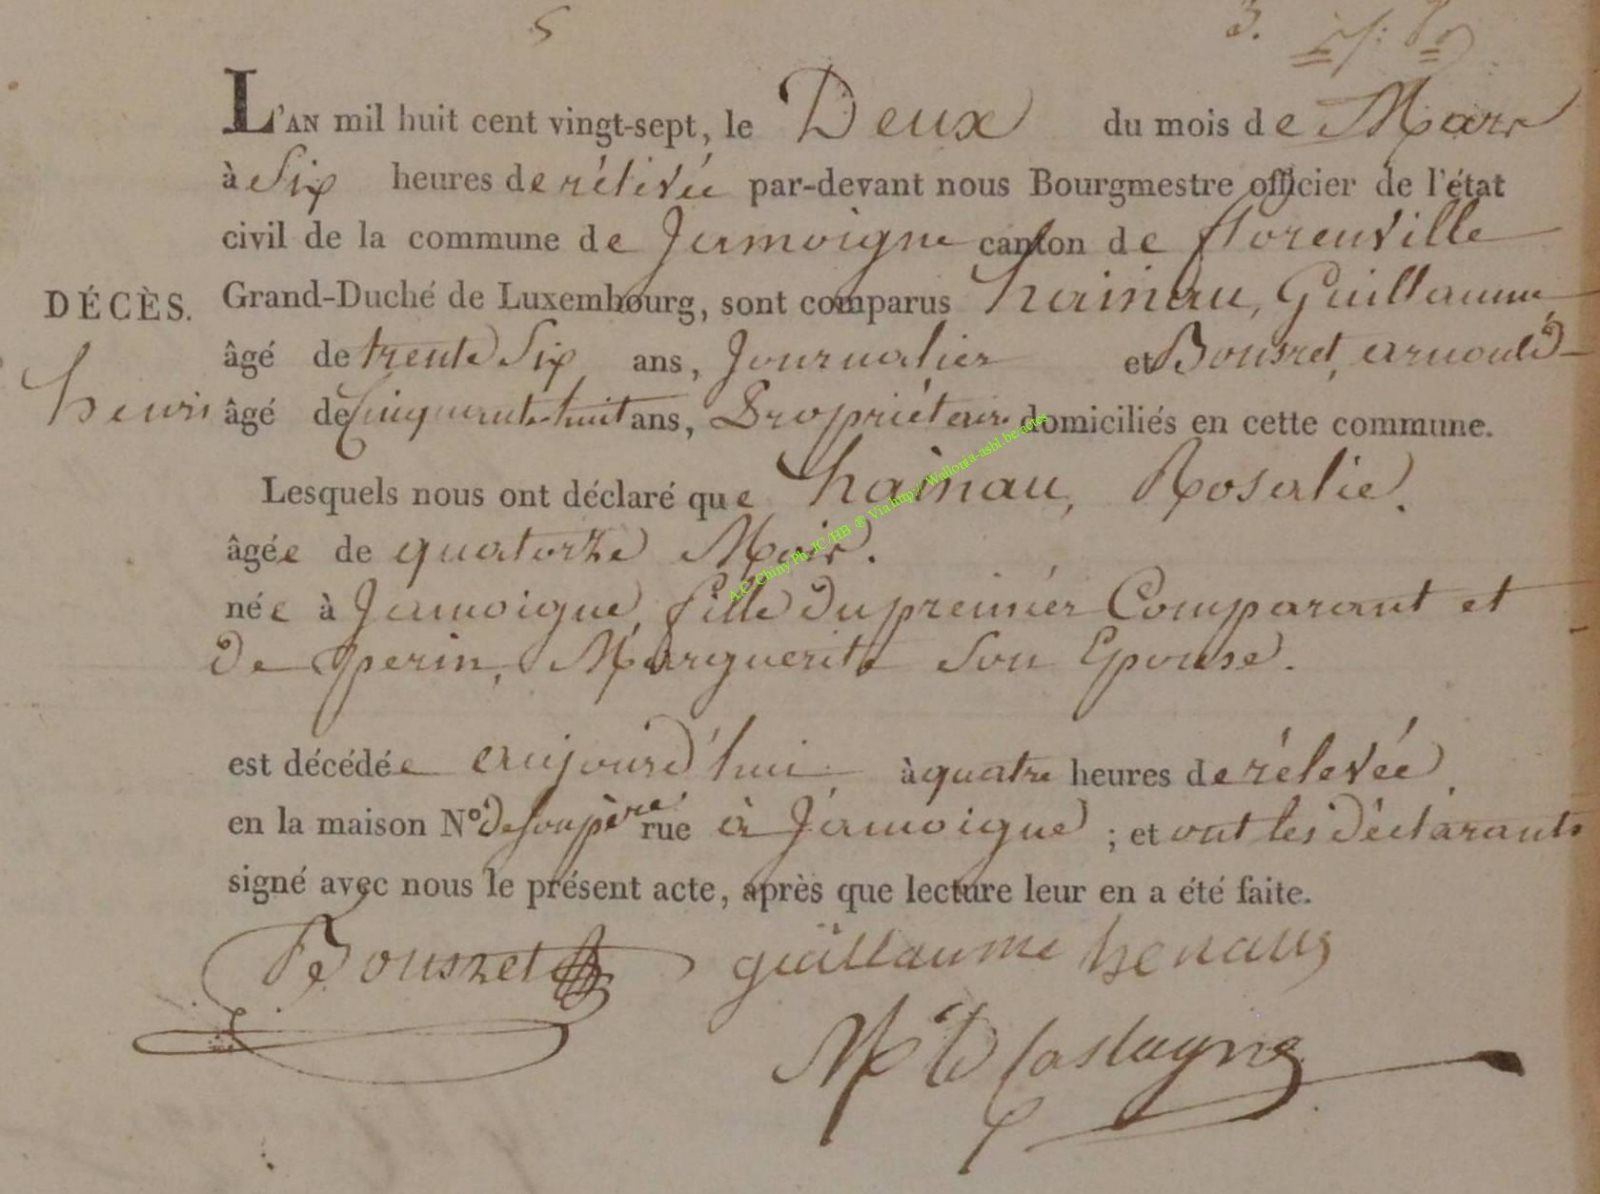 5
3.
L'AN mil huit cent vingt-sept, le Deux du mois de Mars
à Six heures de rélevée par-devant nous Bourgmestre officier de l'état
civil de la commune de Jamoigne canton de florenville
DÉCÈS.
Grand-Duché de Luxembourg, sont comparus hainau, Guillaume
âgé de trente Six ans, Journalier et Bousret, arnould
âgé de Cinquante-huit ans, Propriétaire domiciliés en cette commune.
Lesquels nous ont déclaré que hainau, Rosalie.
âgée de quatorze Mois.
née à Jamoigne, fille du premier Comparant et
de perin, Marguerite Son Epouse.
est décédée aujourd'hui à quatre heures de rélevée,
en la maison N° de son père rue à Jamoigne ; et ont les déclarants
signé avec nous le présent acte, après que lecture leur en a été faite.
Bousret guillaume henaux
Castagne
A.C. Chiny Ph. JC/HB ® Via http://Wallonia-asbl.be/actes